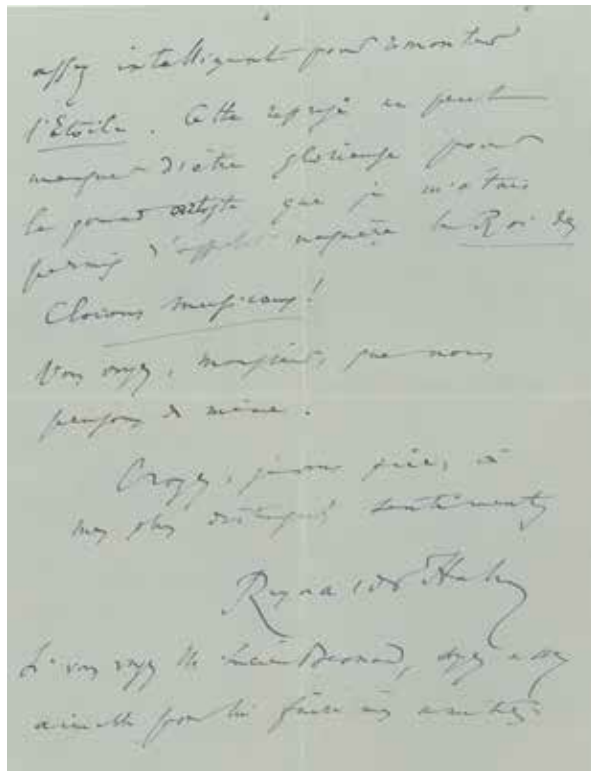 assez intelligent pour remonter
l'Etoile. Cette reprise ne peut
manquer d'être glorieuse pour
le grand artiste que je m'étais
permis d'appeler naguère le Roi des
Clowns musicaux!
Vous voyez, monsieur, que nous
pensons de même.
Croyez, je vous prie, à
mes plus distingués sentiments
Reynaldo Hahn
Si vous voyez M. Lucien Besnard, soyez assez
aimable pour lui faire mes amitiés